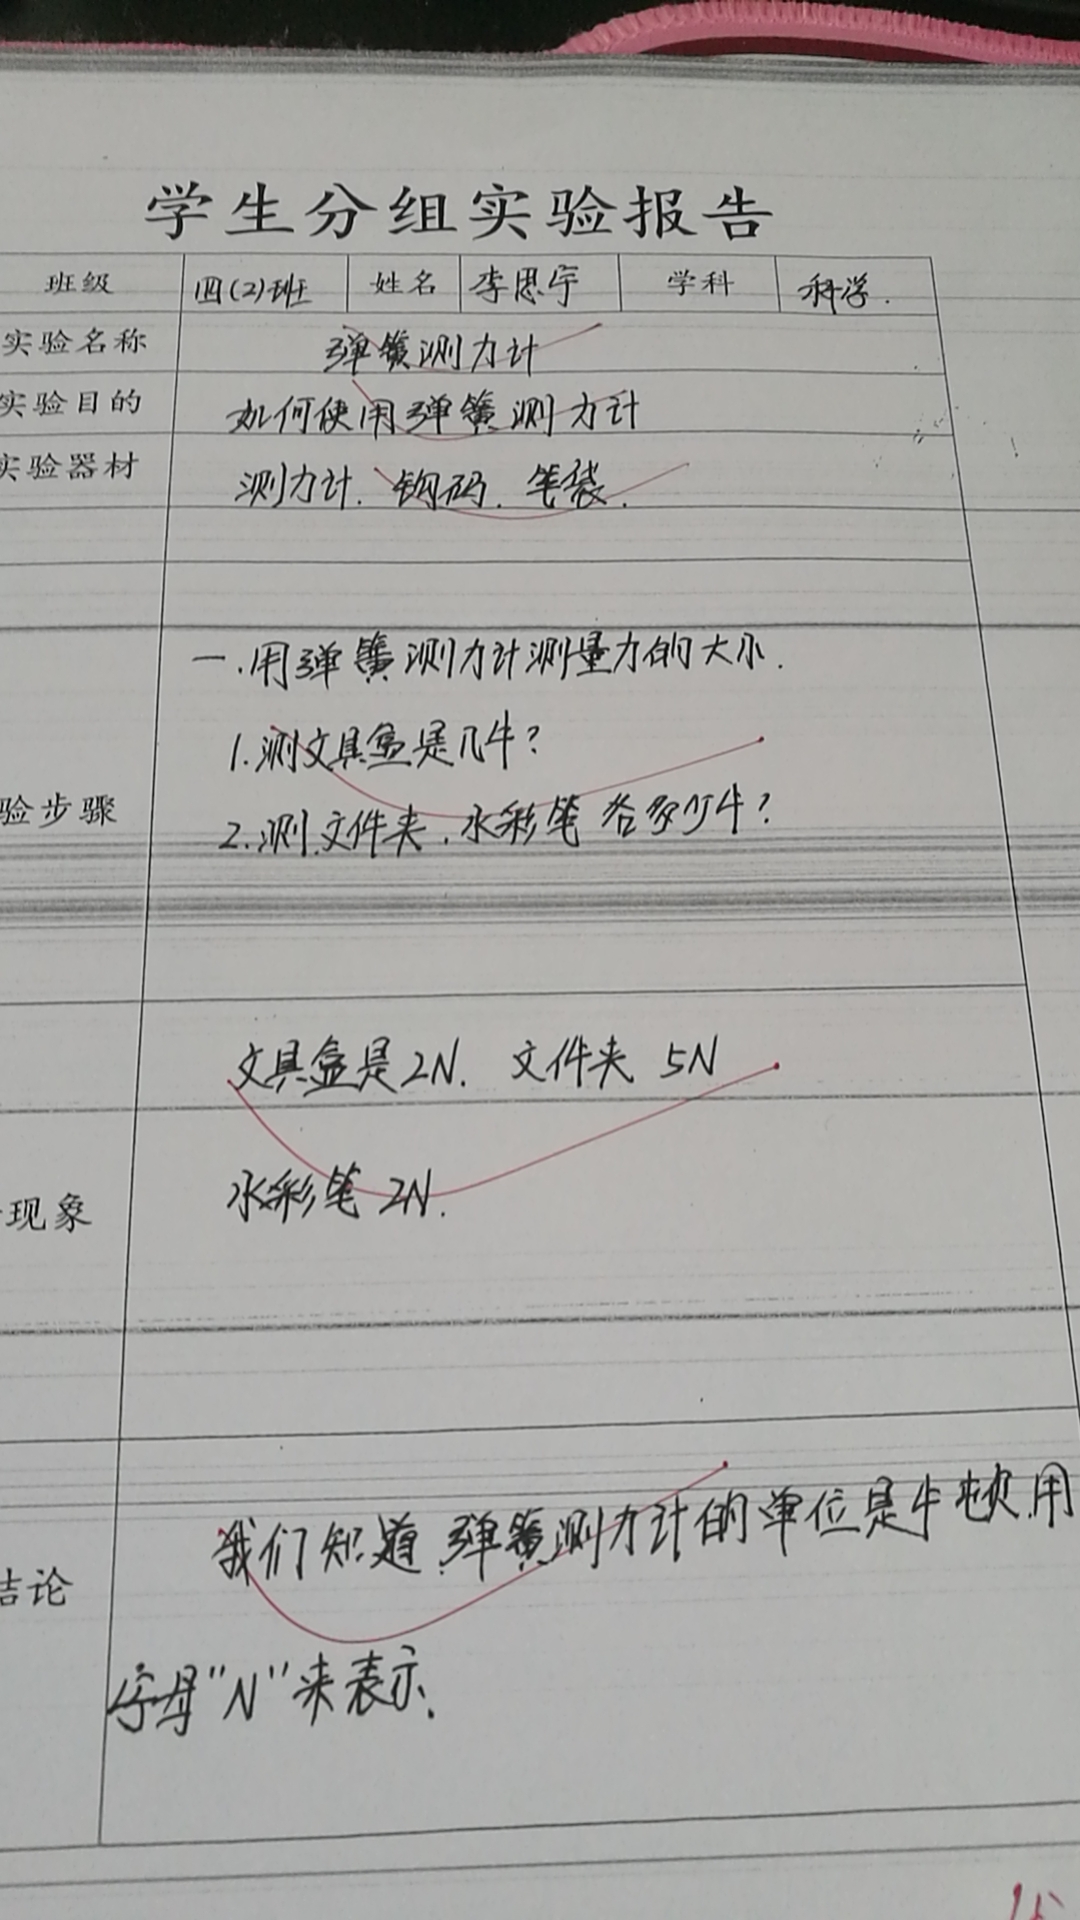 学生分组实验报告
班级 四(2)班 姓名 李思宇 学科 科学.
实验名称 弹簧测力计
实验目的 如何使用弹簧测力计
实验器材 测力计、钩码、笔袋.
一.用弹簧测力计测量力的大小.
1.测文具盒是几牛?
验步骤
2.测.文件夹.水彩笔各多少牛?
文具盒是2N. 文件夹 5N
水彩笔 2N.
现象
我们知道.弹簧测力计的单位是牛顿.用
结论
字母"N"来表示.